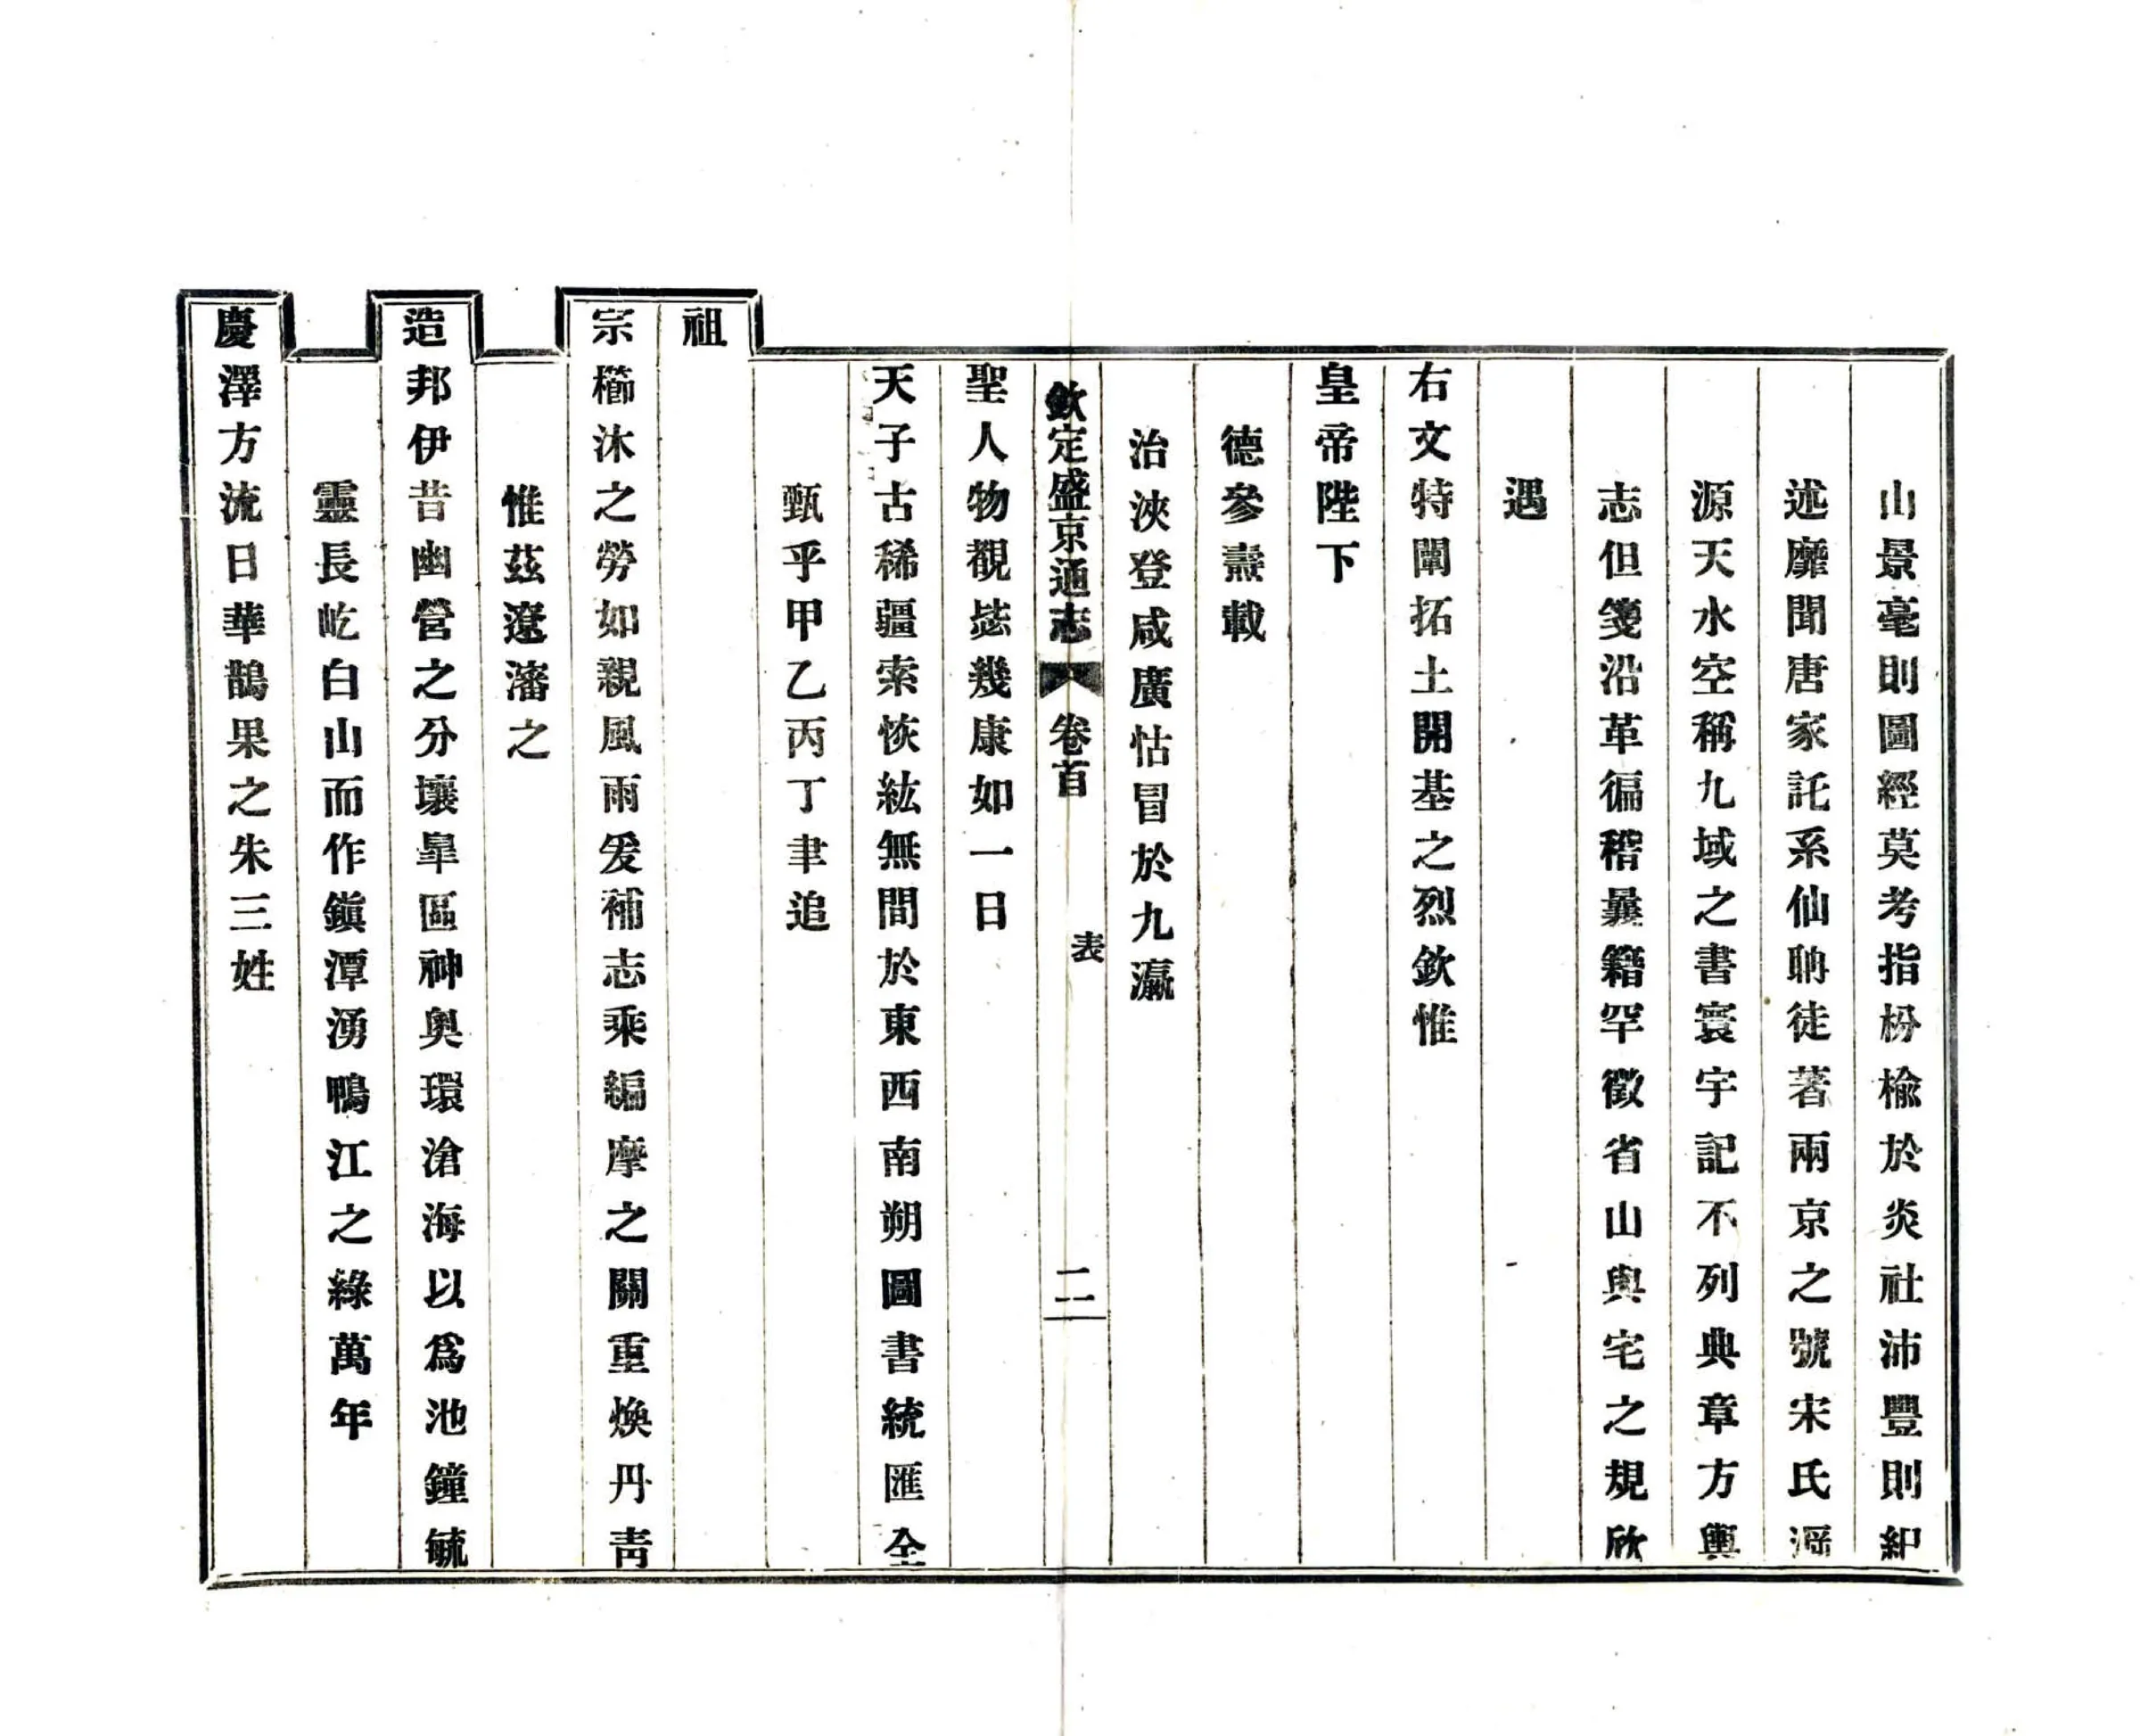 山景亳則圖經莫考指枌楡於炎社沛豐則紀
述靡聞唐家託系仙聃徒著兩京之號宋氏溯
源天水空稱九域之書寰宇記不列典章方輿
志但箋沿革徧稽曩籍罕徵省山與宅之規欣
遇
右文特闡拓土開基之烈欽惟
皇帝陛下
德參燾載
治浹登咸廣怙冒於九瀛
欽定盛京通志 卷首 表 二
聖人物覩毖幾康如一日
天子古稀疆索恢紘無間於東西南朔圖書統匯全
甄乎甲乙丙丁聿追
祖
宗櫛沐之勞如親風雨爰補志乘編摩之闕重煥丹靑
惟茲遼瀋之
造邦伊昔幽營之分壤皐區神奧環滄海以爲池鐘毓
靈長屹白山而作鎭潭湧鴨江之綠萬年
慶澤方流日華鵲果之朱三姓